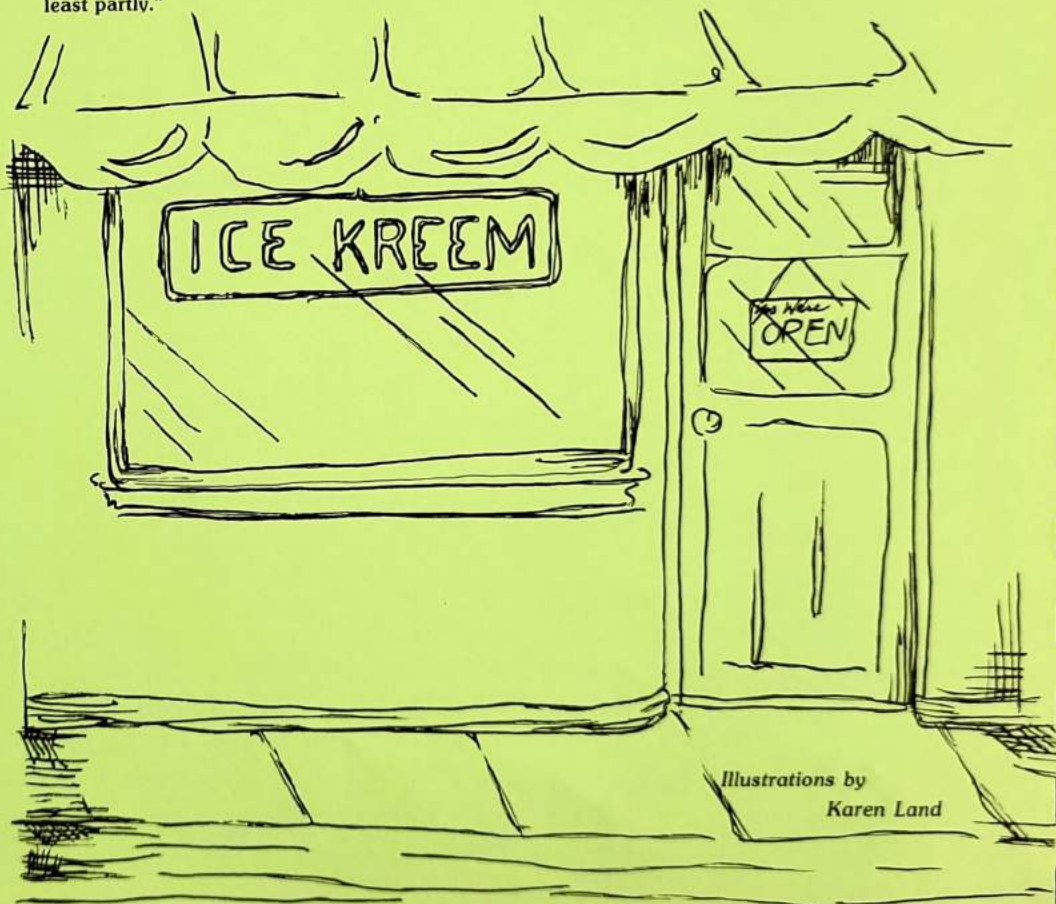 least partly."
ICE KREEM
Yes We're
OPEN
Illustrations by
Karen Land